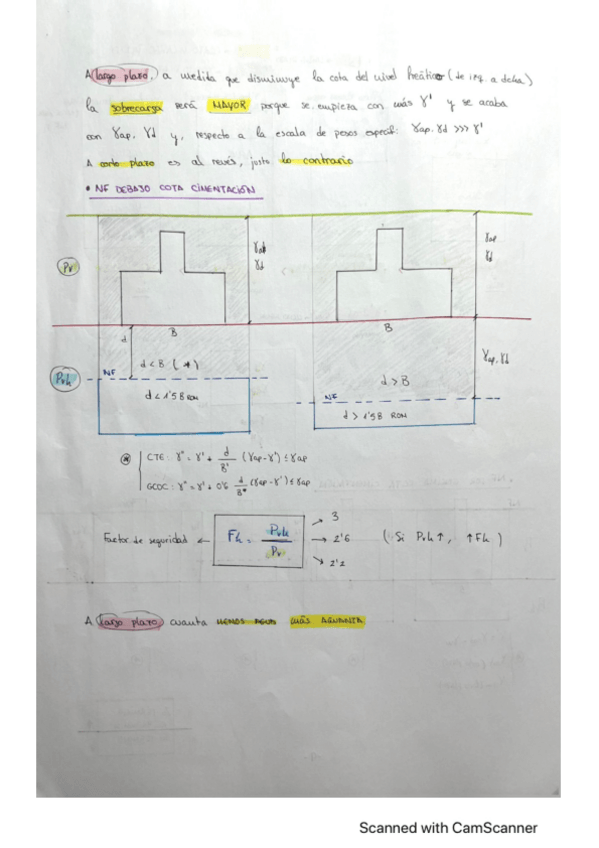 A largo plazo, a medida que disminuye la cota del nivel freático (de izq. a dcha)
la sobrecarga será MAYOR porque se empieza con más γ' y se acaba
con γap. γd y, respecto a la escala de pesos específ: γap. γd >>> γ'
A corto plazo es al revés, justo lo contrario
• NF DEBAJO COTA CIMENTACIÓN
Pv
γap
γd
γap
γd
d
B
B
Pvh
NF
d < B (*)
d < 1'5B ROM
d > B
γap. γd
NF
d > 1'5B ROM
* CTE: γ* = γ' + d/B* (γap - γ') ≤ γap
GCOC: γ* = γ' + 0'6 d/B* (γap - γ') ≤ γap
Factor de seguridad ← Fh = Pvh/Pv → 3
→ 2'6
→ 2'2
(Si Pvh ↑, ↑ Fh)
A largo plazo cuanta MENOS AGUA más AGUANTA
Scanned with CamScanner